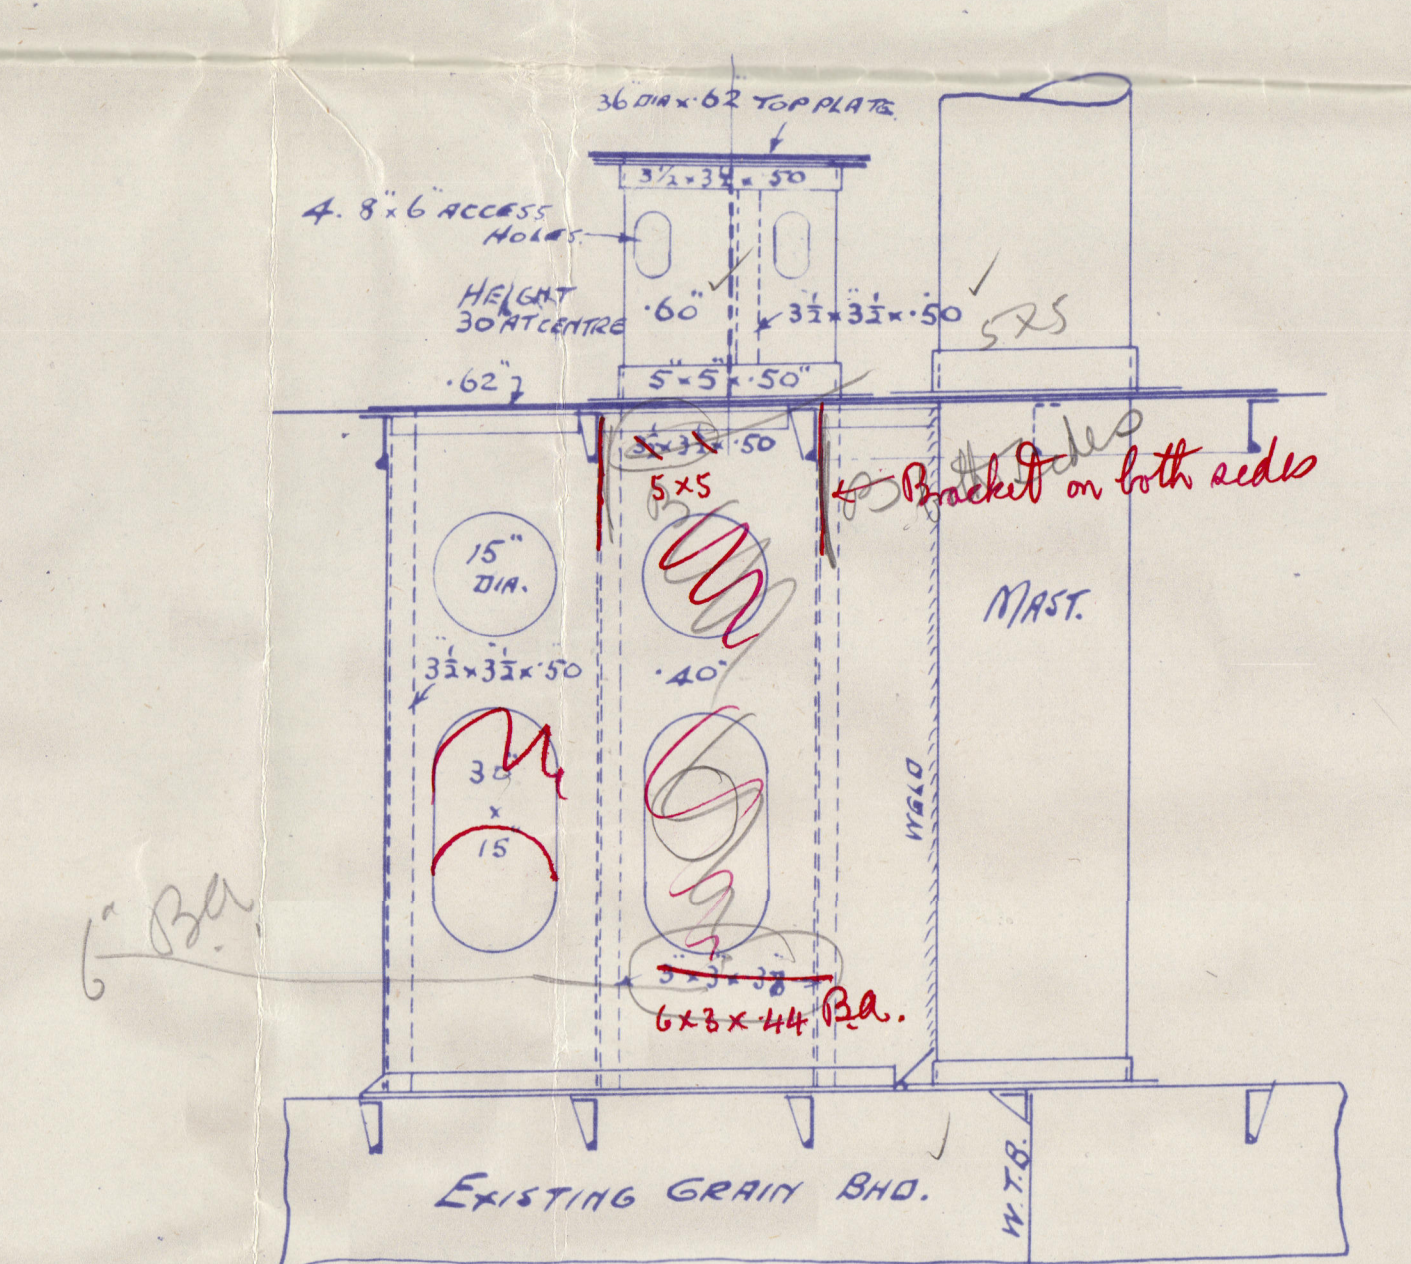 36" DIA × .62" TOP PLATE.
3½ × 3½ × .50
4. 8" × 6" ACCESS
HOLES.
HEIGHT
30 AT CENTRE
.60"
3½ × 3½ × .50
5 × 5
.62"
5" × 5" × .50"
3½ × 3½ × .50
5 × 5
Both sides
Bracket on both sides
15"
DIA.
MAST.
3½ × 3½ × .50
.40"
30"
×
15"
WELD
6" Ba.
6 × 3 × .44 Ba.
EXISTING GRAIN BHD.
W.T.B.